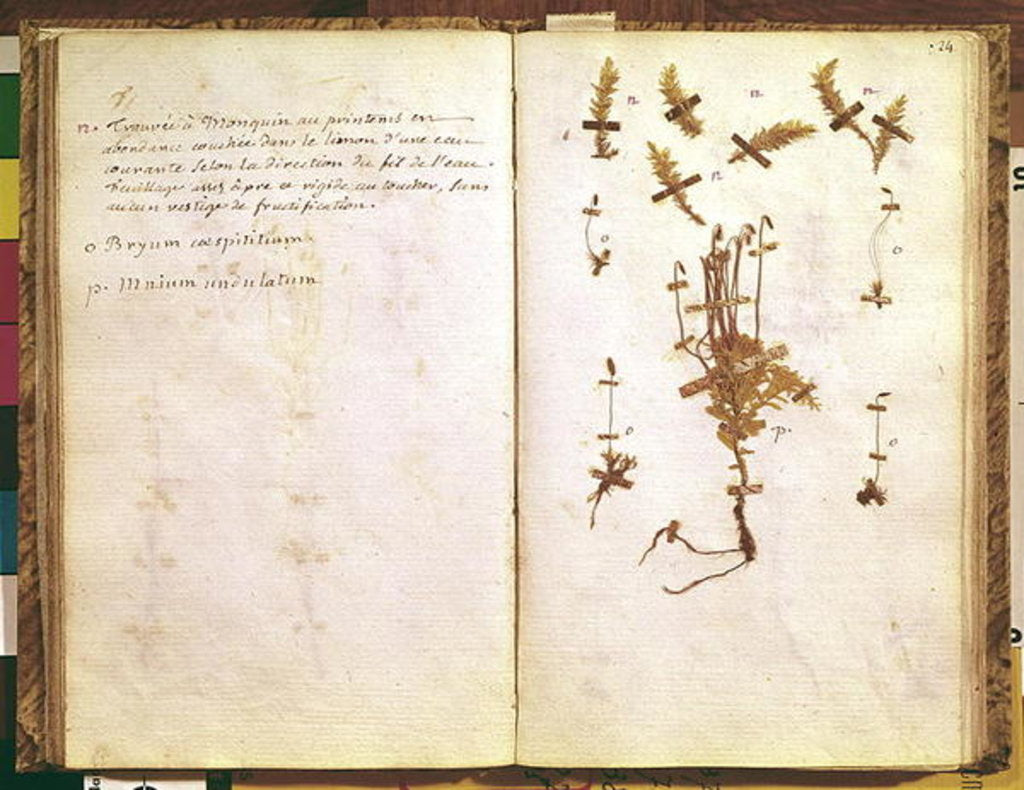 n. Trouvée à Monquin au printems en
abondance couchée dans le limon d'une eau
courante selon la direction du fil de l'eau.
feuillage assés âpre et rigide au toucher, sans
aucun vestige de fructification.
o Bryum cæspititium.
p. Mnium undulatum
24
n
n
n
n
n
o
o
o
p.
o